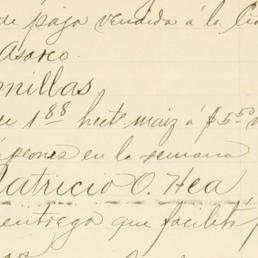 de paja vendida á la Cia
Asarco.
millas
1 88 hects maiz á $5.50
peones en la semana
Patricio O. Hea
entrega que facilitó